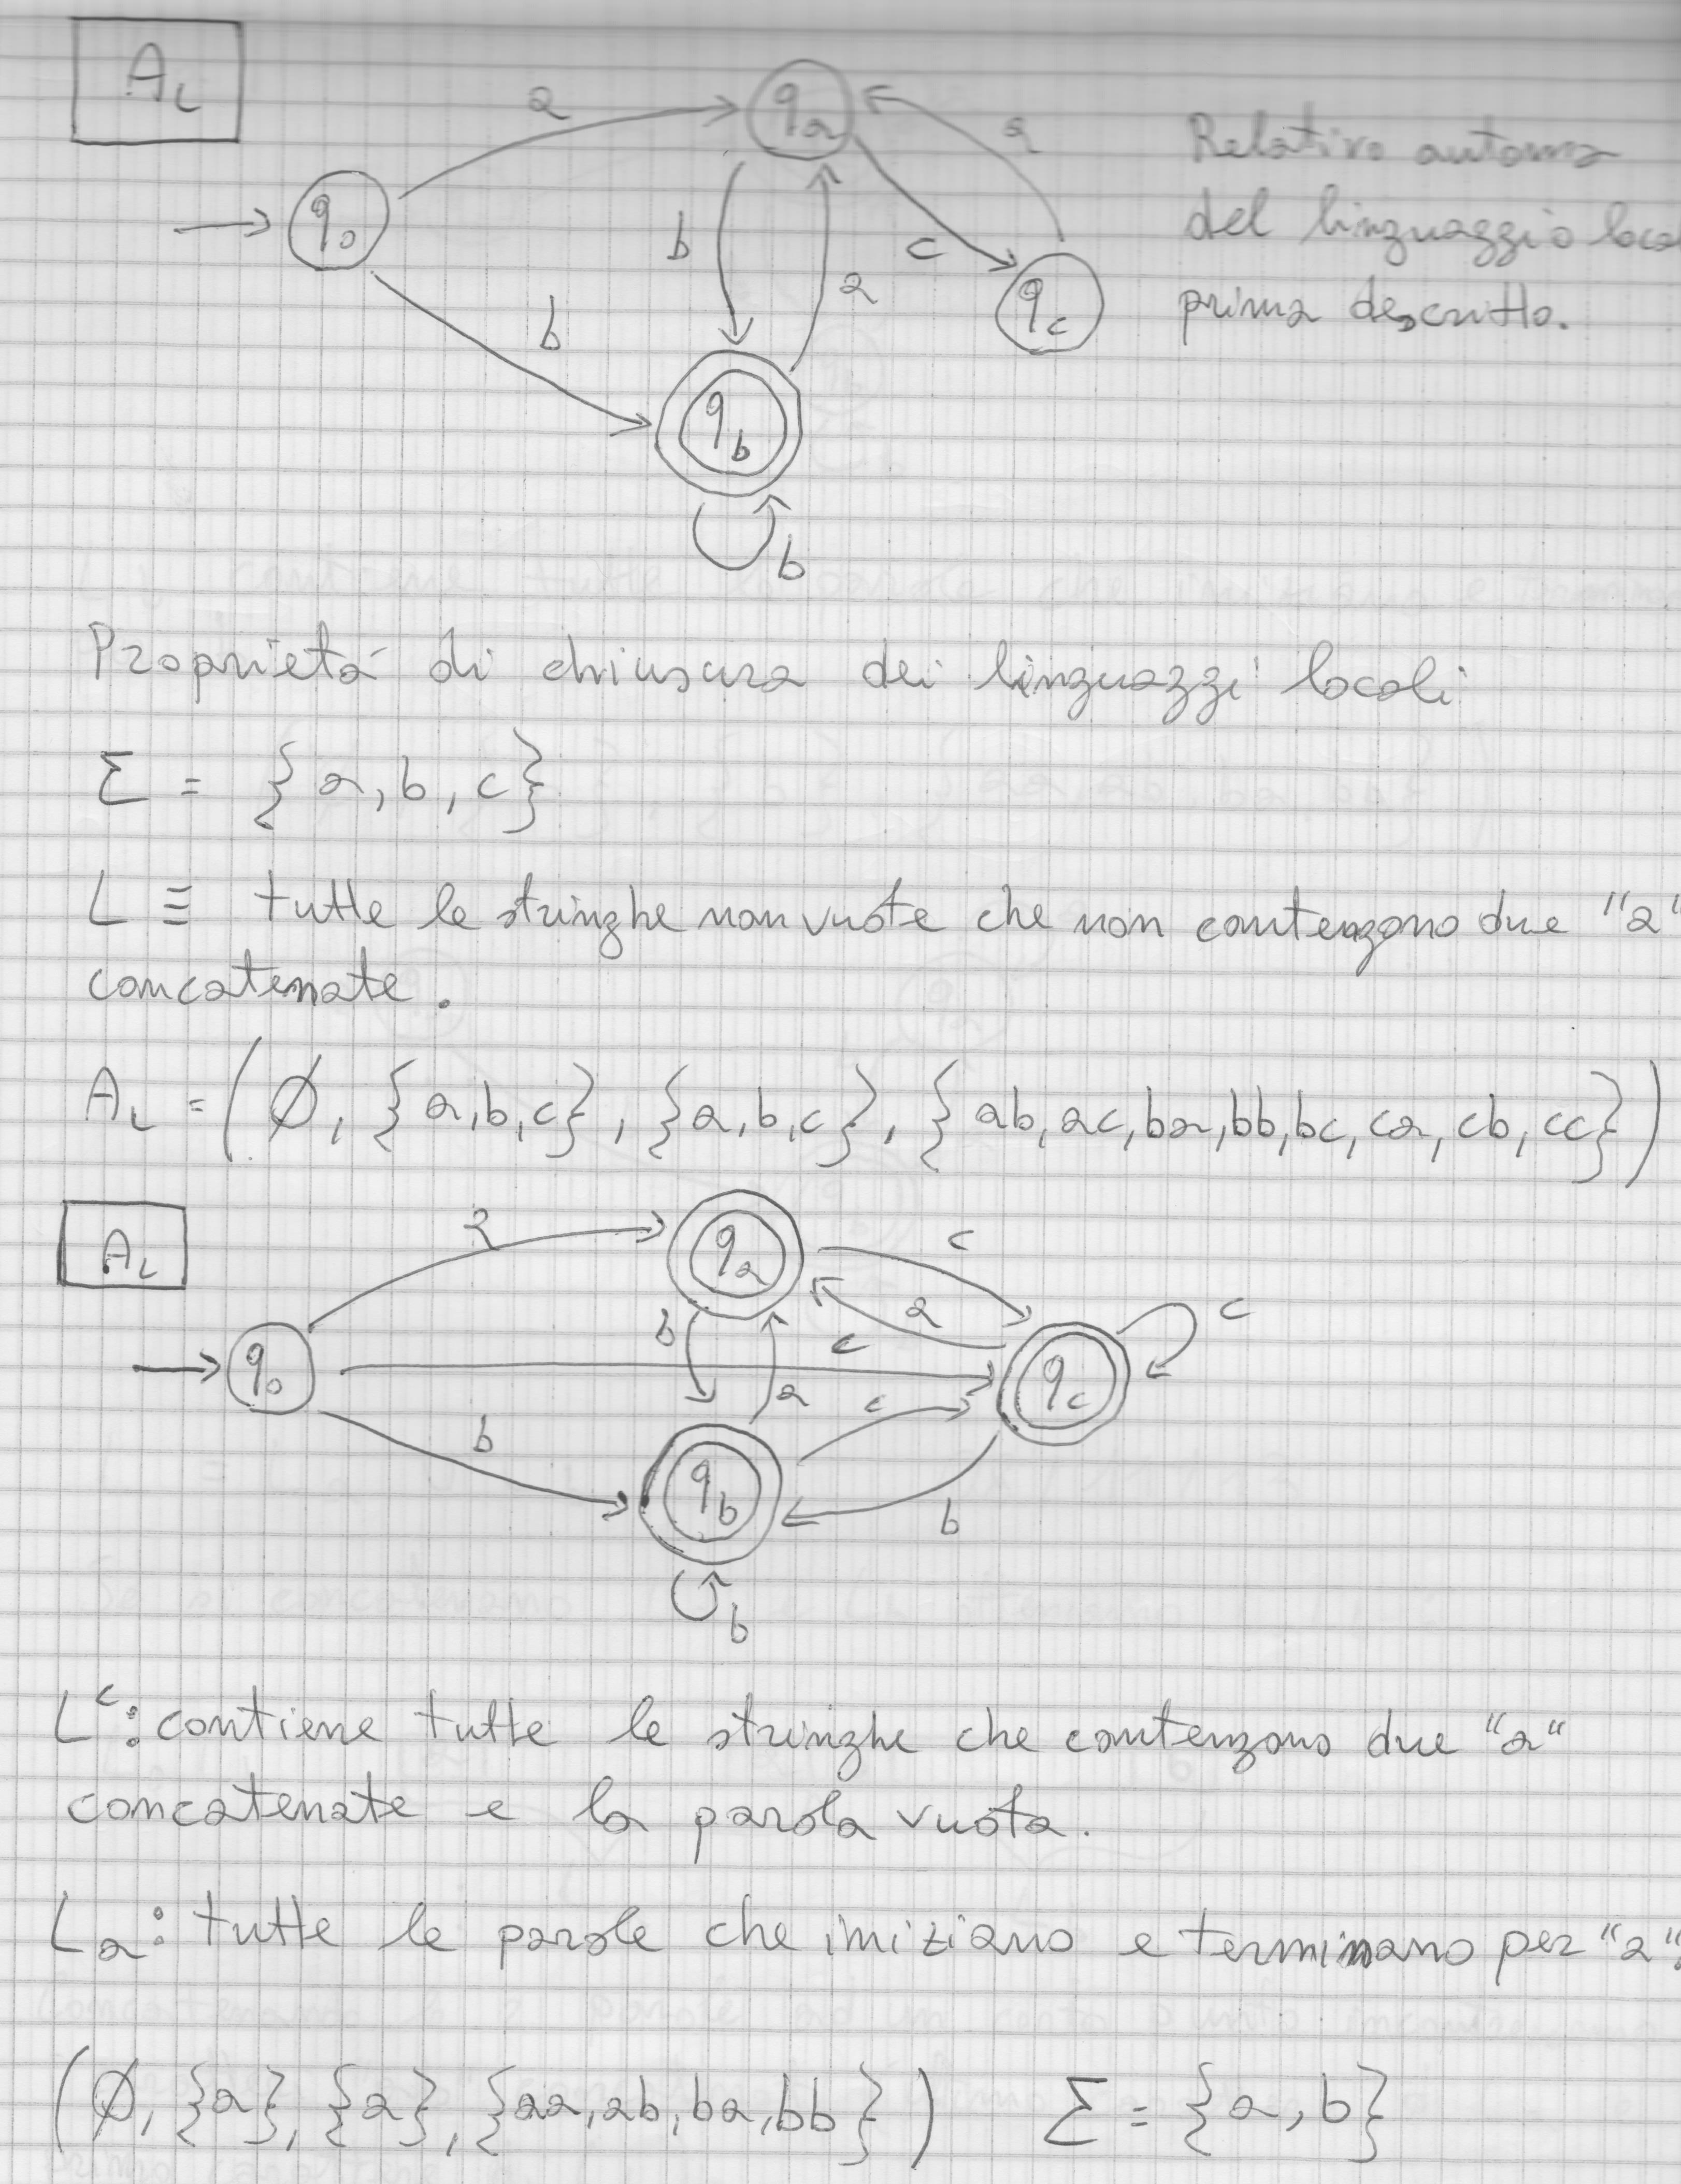 A_L
a
q_a
a
Relativo automa
q_0
b
c
del linguaggio local
a
b
q_c
prima descritto.
q_b
b
Proprietà di chiusura dei linguaggi locali
Σ = {a, b, c}
L ≡ tutte le stringhe non vuote che non contengono due "a"
concatenate.
A_L = (∅, {a,b,c}, {a,b,c}, {ab, ac, ba, bb, bc, ca, cb, cc})
A_L
a
q_a
c
b
a
c
c
q_0
q_c
a
c
b
q_b
b
b
L^c: contiene tutte le stringhe che contengono due "a"
concatenate e la parola vuota.
L_a: tutte le parole che iniziano e terminano per "a".
(∅, {a}, {a}, {aa, ab, ba, bb}) Σ = {a, b}